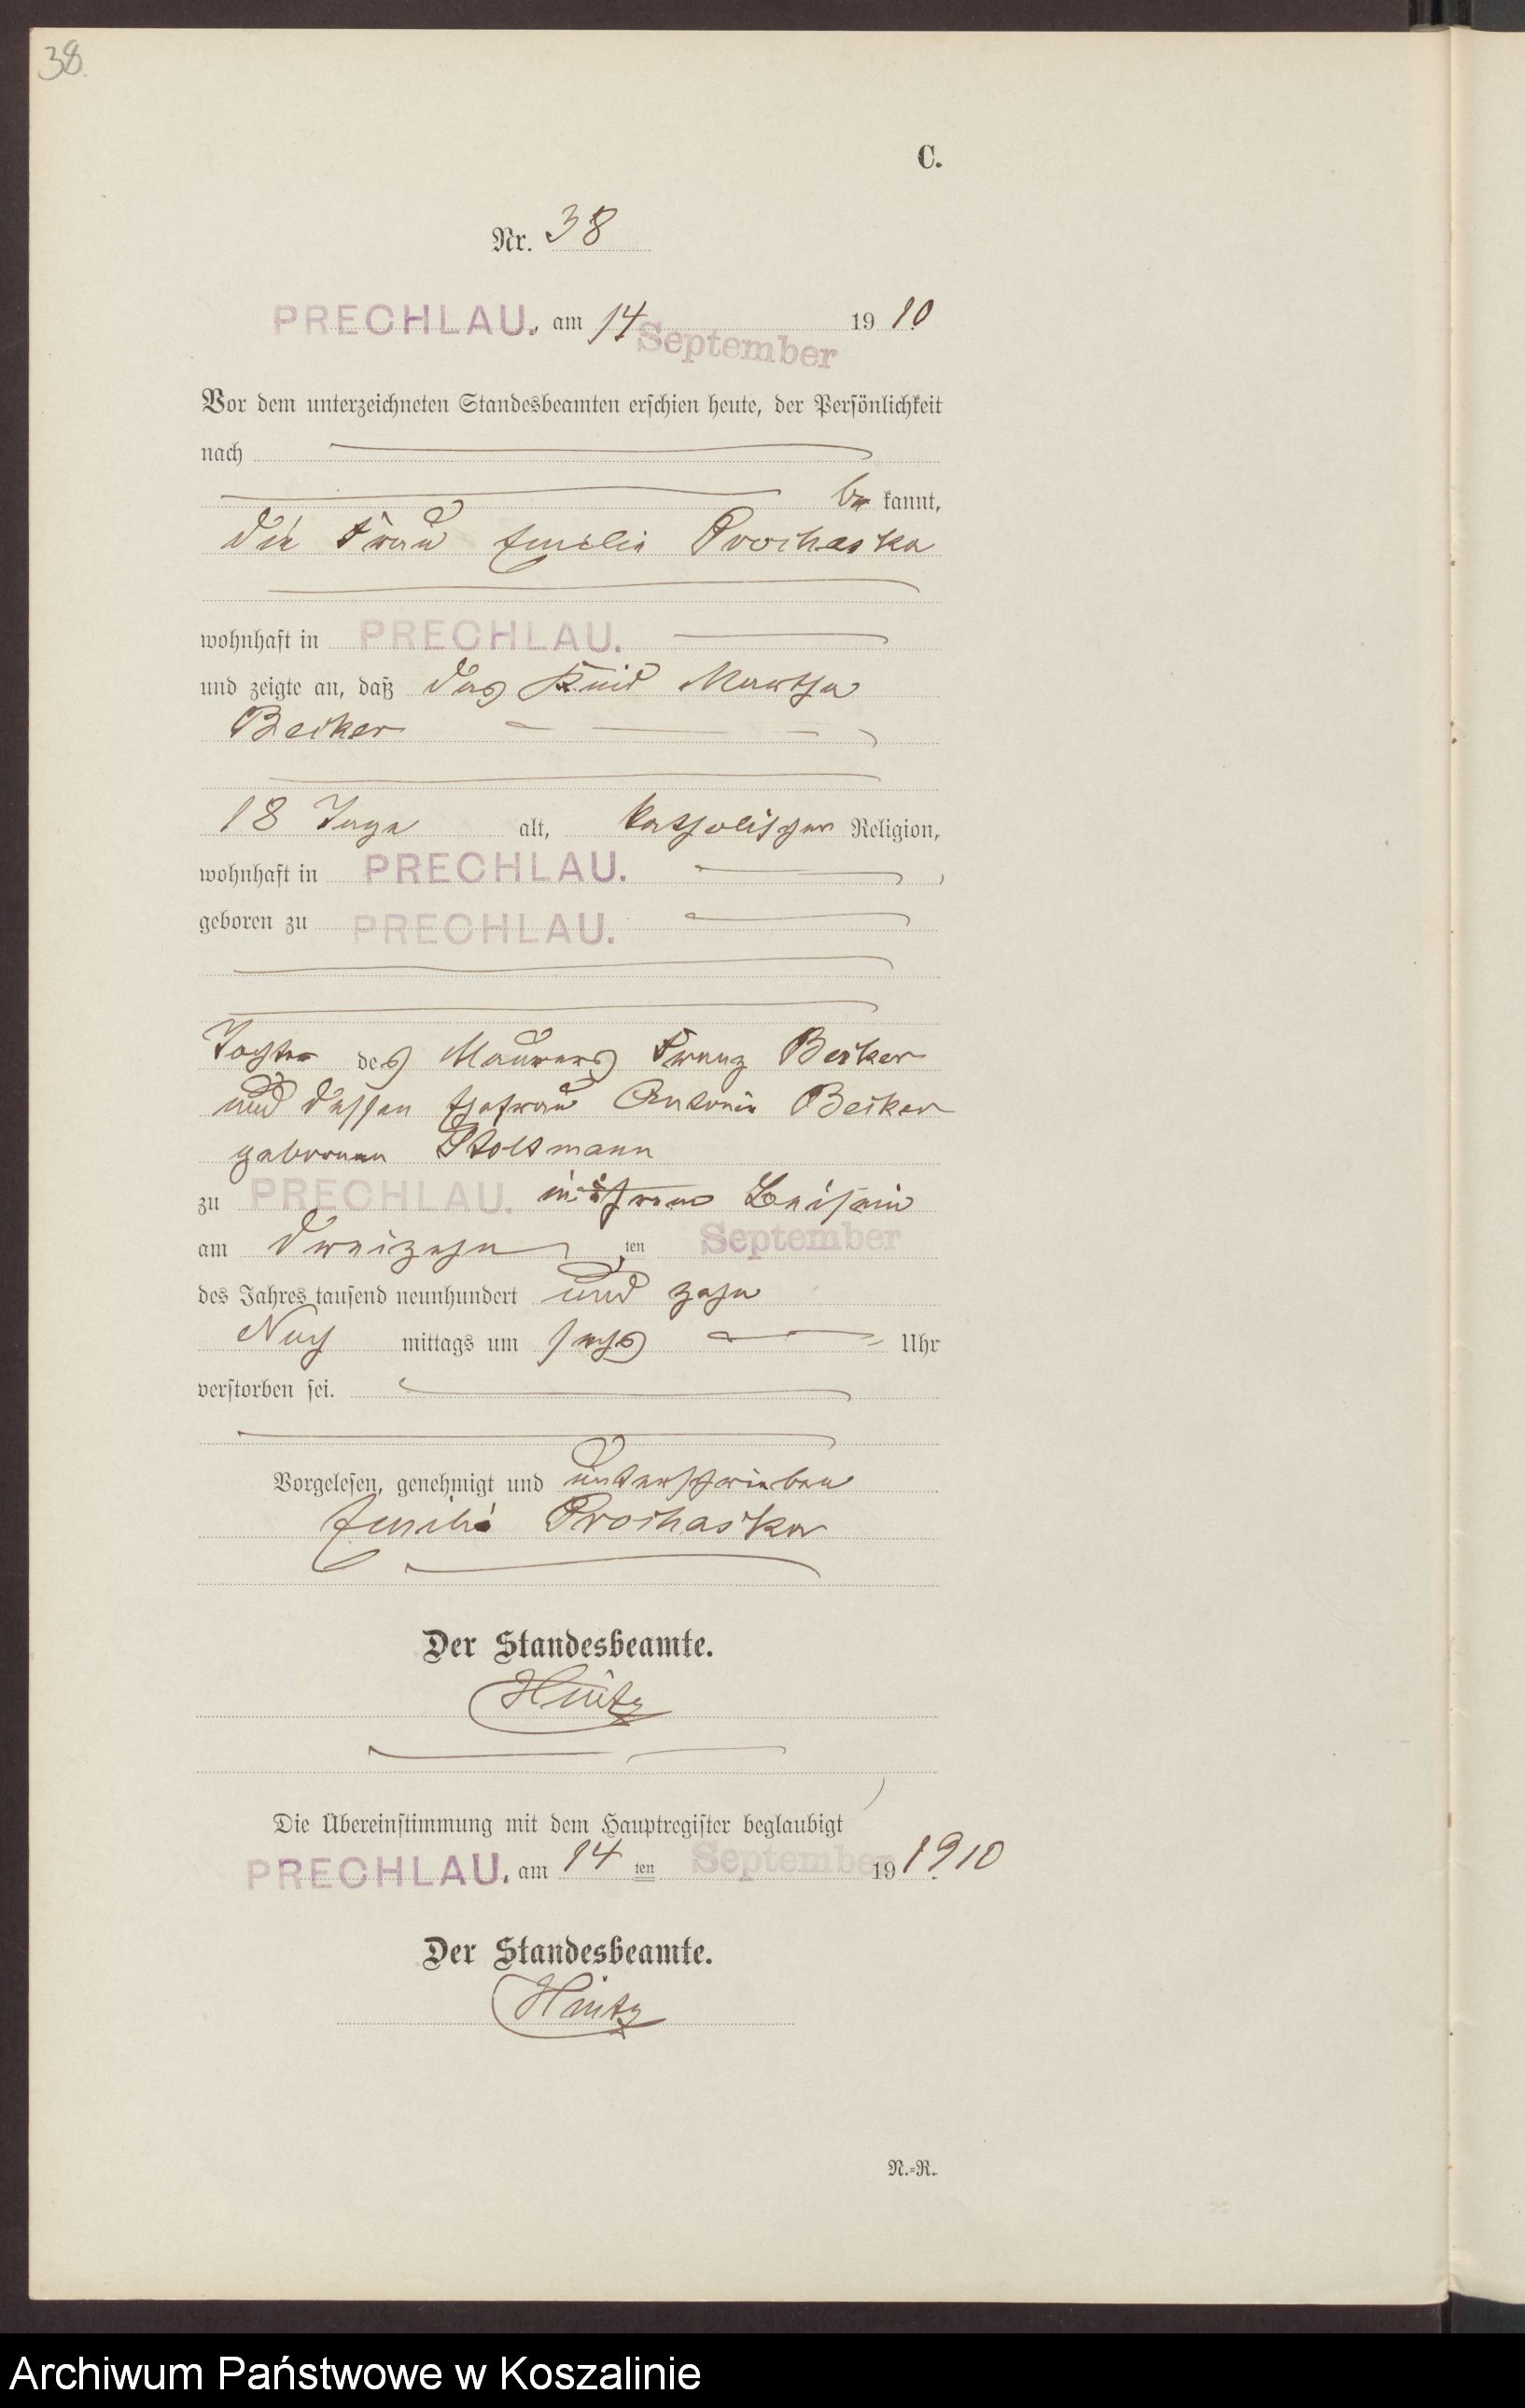 38.
C.
Nr. 38
PRECHLAU., am 14 September 1910
Vor dem unterzeichneten Standesbeamten erschien heute, der Persönlichkeit
nach
be kannt,
die Frau Emilie Prochaska
wohnhaft in PRECHLAU.
und zeigte an, daß das Kind Martha
Becker
18 Tage alt, katholischer Religion,
wohnhaft in PRECHLAU.
geboren zu PRECHLAU.
Tochter des Maurers Franz Becker
und dessen Ehefrau Antonie Becker
geborenen Stoltmann
zu PRECHLAU. in ihrem Beisein
am dreizehn ten September
des Jahres tausend neunhundert und zehn
Nach mittags um sechs Uhr
verstorben sei.
Vorgelesen, genehmigt und unterschrieben
Emilie Prochaska
Der Standesbeamte.
Hintz
Die Übereinstimmung mit dem Hauptregister beglaubigt
PRECHLAU, am 14 ten September 19 1910
Der Standesbeamte.
Hintz
N.=R.
Archiwum Państwowe w Koszalinie